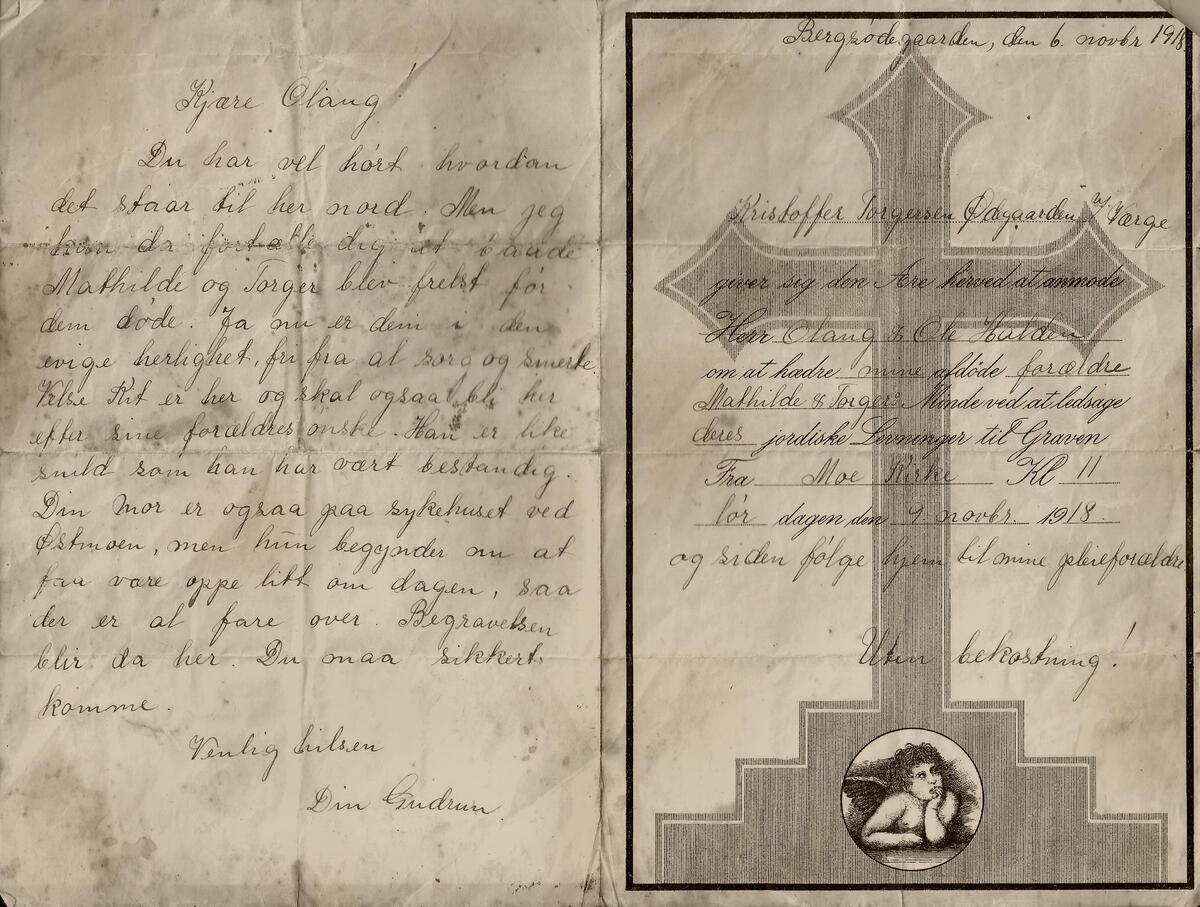 Kjære Olaug!
Du har vel hørt hvordan
det staar til her nord. Men jeg
kan da fortælle dig at baade
Mathilde og Torger blev frelst før
dem døde. Ja nu er dem i den
evige herlighet, fri fra al sorg og smerte.
Vesle Kit er her og skal ogsaa bli her
efter sine forældres ønske. Han er like
snild som han har vært bestandig.
Din mor er ogsaa paa sykehuset ved
Østmoen, men hun begynder nu at
faa være oppe litt om dagen, saa
der er al fare over. Begravelsen
blir da her. Du maa sikkert
komme.
Venlig hilsen
Din Gudrun.
Bergsødegaarden, den 6. novbr 1918
Kristoffer Torgersen Ødegaarden, v/ Værge
giver sig den Ære herved at anmode
Herr Olaug & Ole Halden
om at hædre mine afdøde forældre
Mathilde & Torgers Minde ved at ledsage
deres jordiske Levninger til Graven
Fra Moe Kirke Kl 11
lør dagen den 9. novbr. 1918.
og siden følge hjem til mine pleieforældre
Uten bekostning!